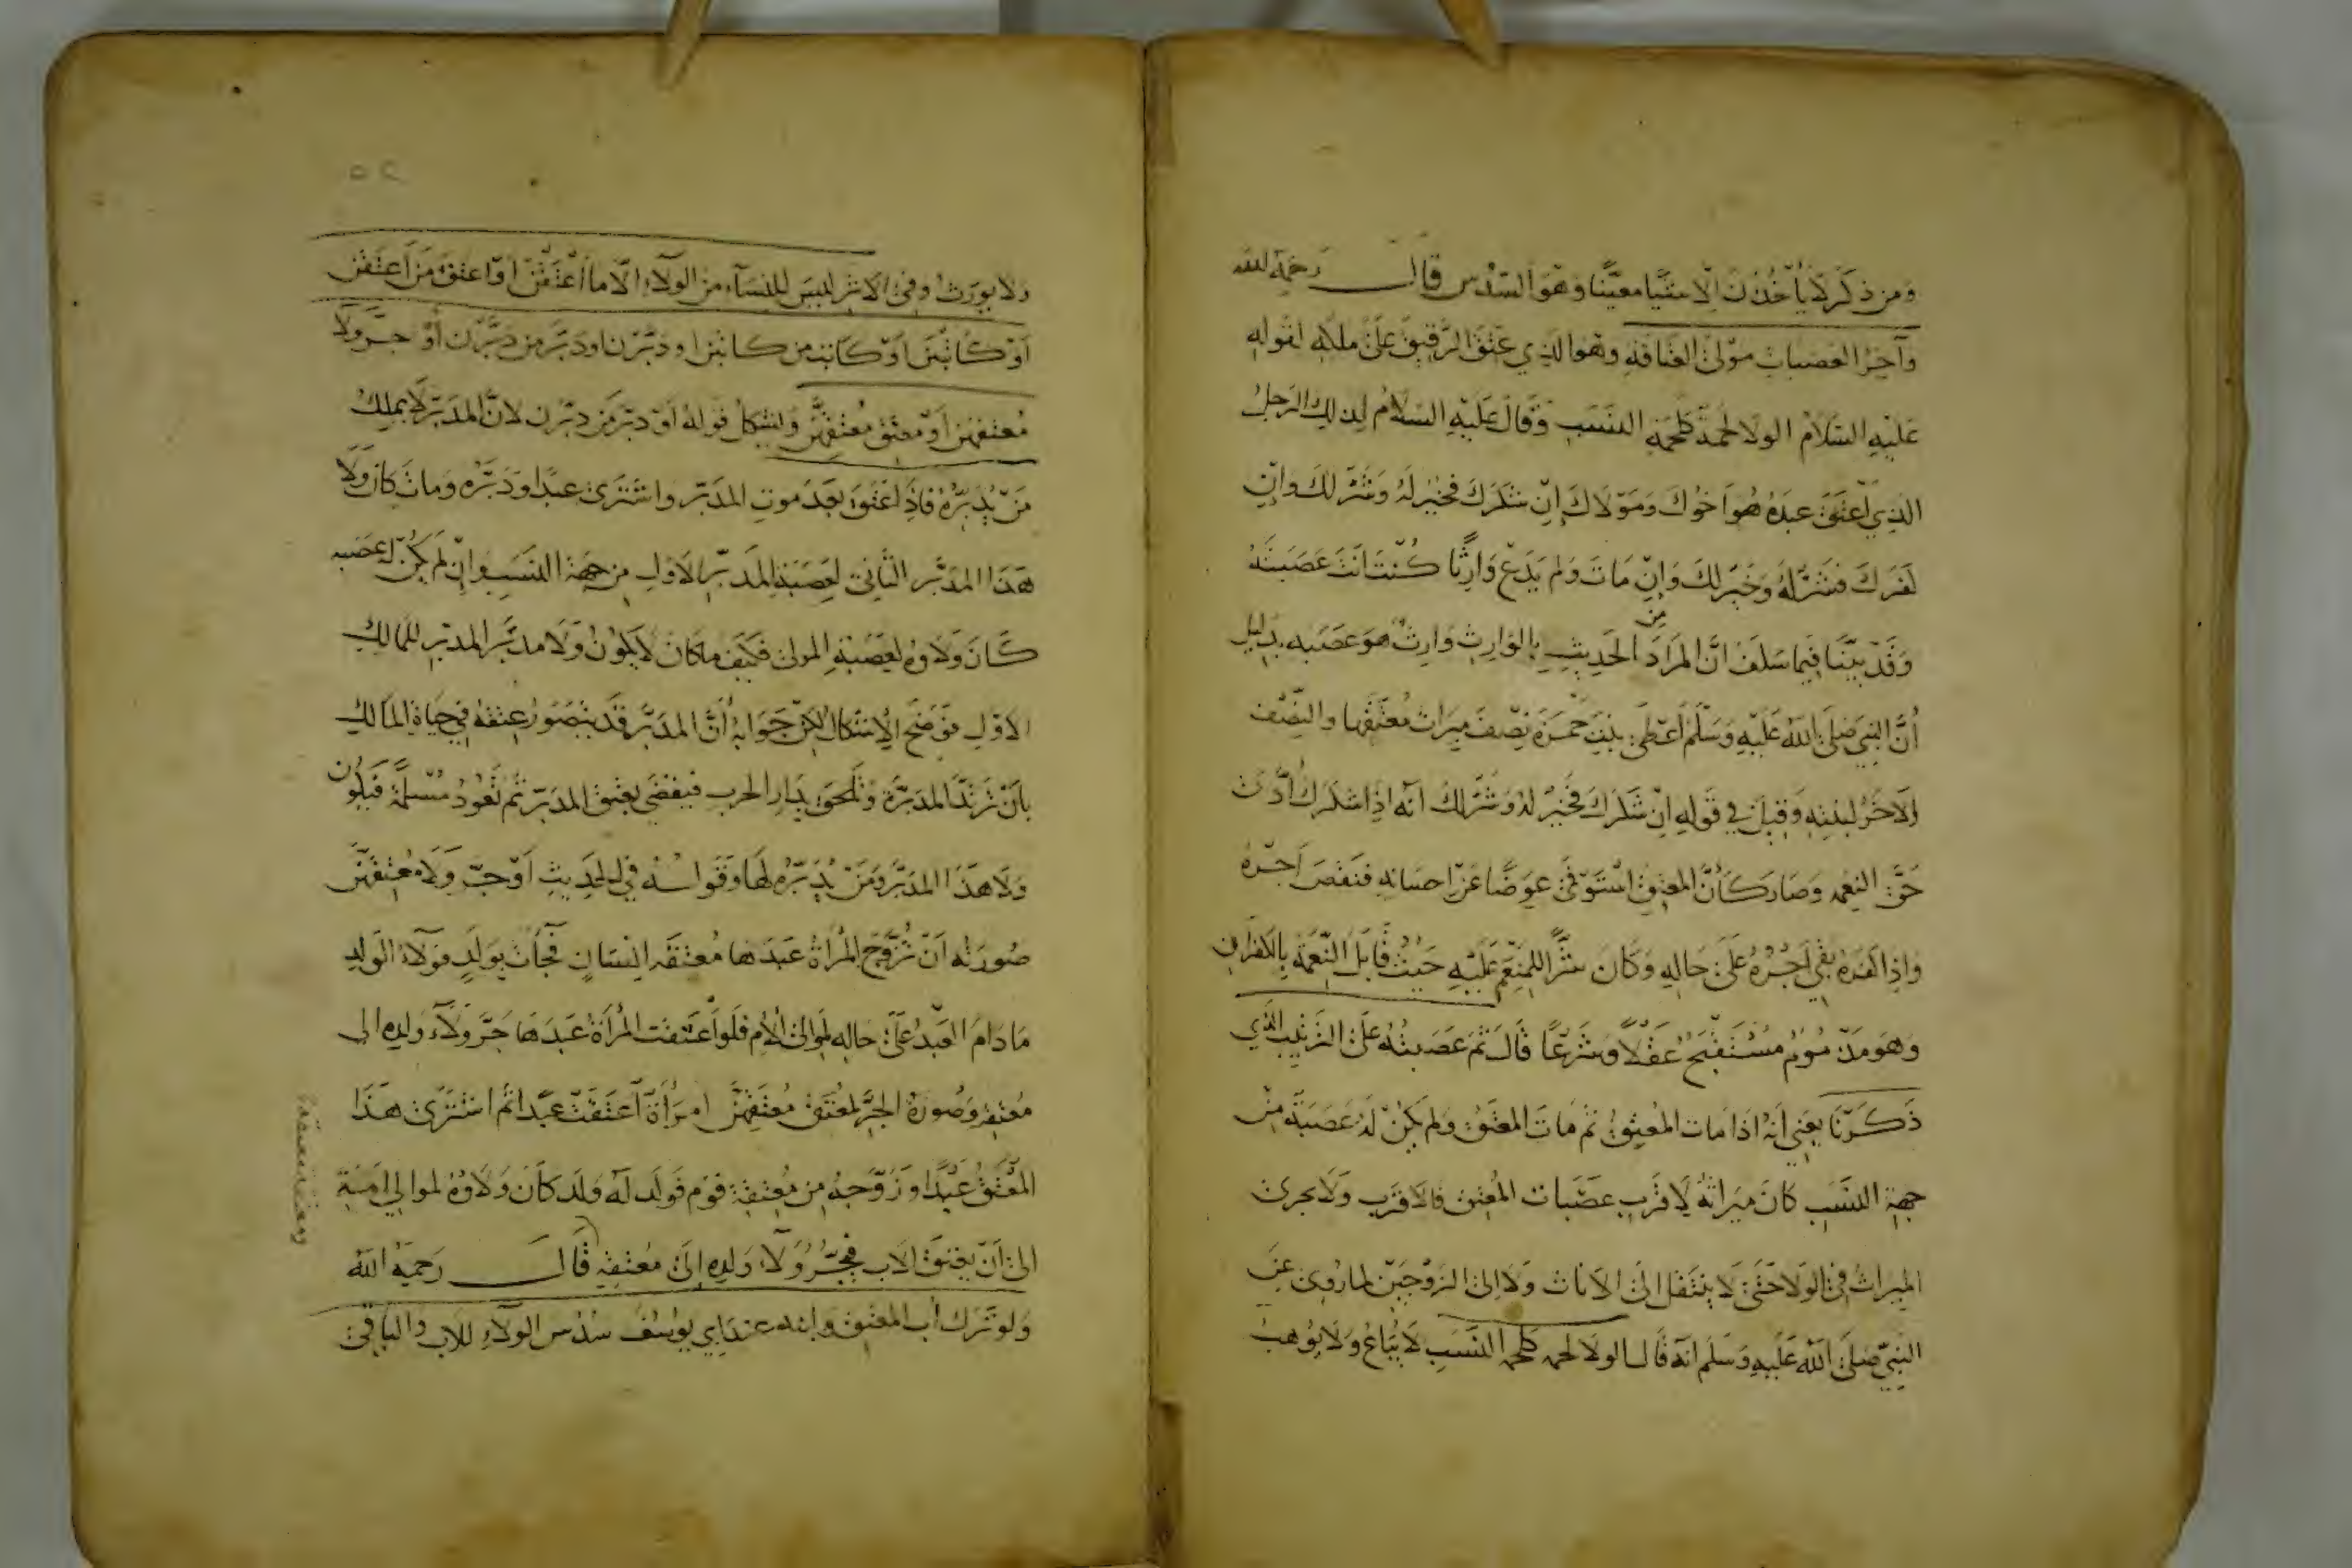 ومن ذكر لا يأخذن إلا شيئا معينا وهو السدس قال رحمه الله
وآخر العصبات مولى العتاقة وهو الذي عتق الرقيق على ملكه لقوله
عليه السلام الولا لحمة كلحمة النسب وقال عليه السلام لذلك الرجل
الذي أعتق عبده هو أخوك ومولاك إن شكرك فخير له وشر لك وإن
كفرك فشر له وخير لك وإن مات ولم يدع وارثا كنت أنت عصبته
وقد بينا فيما سلف أن المراد من الحديث بالوارث وارث هو عصبه بدليل
أن النبي صلى الله عليه وسلم أعطى بنت حمزة نصف ميراث معتقها والنصف
الآخر لبنته وقيل في قوله إن شكرك فخير له وشر لك أنه إذا شكرك أدى
حق النعمه وصار كأن المعتق استوفى عوضا عن احسانه فنقص أجره
وإذا كفره بقي أجره على حاله وكان شرا للمنعم عليه حيث قابل النعمة بالكفران
وهو مذموم مستقبح عقلا وشرعا قال ثم عصبته على الترتيب الذي
ذكرنا يعني أنه اذا مات المعتق ثم مات المعتق ولم يكن له عصبة من
جهة النسب كان ميراثه لاقرب عصبات المعتق فالاقرب ولا يجرى
الميراث في الولا حتى لا ينتقل الى الاناث ولا الى الزوجين لما روي عن
النبي صلى الله عليه وسلم أنه قال الولا لحمه كلحمه النسب لا يباع ولا يوهب
٥٢
ولا يورث وفي الاثر ليس للنساء من الولاء إلا ما أعتقن أو اعتق من أعتقن
أو كاتبن أو كاتب من كاتبن او دبرن او دبر من دبرن أو جر ولا
معتقهن أو معتق معتقهن ويشكل قوله أو دبر من دبرن لان المدبر لا يملك
من يدبره فاذ اعتق بعد موت المدبر واشترى عبدا ودبره ومات كان ولا
هذا المدبر الثاني لعصبة المدبر الاول من جهة النسب وإن لم يكن له عصبه
كان ولاوه لعصبة المولى فكيف ما كان لا يكون ولا مدبر المدبر للمالك
الاول فوضح الاشكال لكن جوابه أن المدبر قد يتصور عتقه في حياة المالك
بأن ترتد المدبرة وتلحق بدار الحرب فيقضى بعتق المدبر ثم تعود مسلمة فيكون
ولا هذا المدبر ومن يدبره لها وقوله في الحديث أو جر ولاء معتقهن
صورته أن تزوج المرأة عبدها معتقه إنسان فجاءت بولد فولاء الولد
ما دام العبد على حاله لموالى الأم فلو أعتقت المرأة عبدها جر ولاء ولده الى
معتقه وصورة الجر لمعتق معتقهن امرأة أعتقت عبدا ثم اشترى هذا
المعتق عبدا وزوجه من معتقة قوم فولد له ولد كان ولاوه لموالي امه
الى أن يعتق الاب فيجر ولاء ولده إلى معتقه قال رحمه الله
ولو ترك أب المعتق وابنه عند أبي يوسف سدس الولاء للاب والباقي